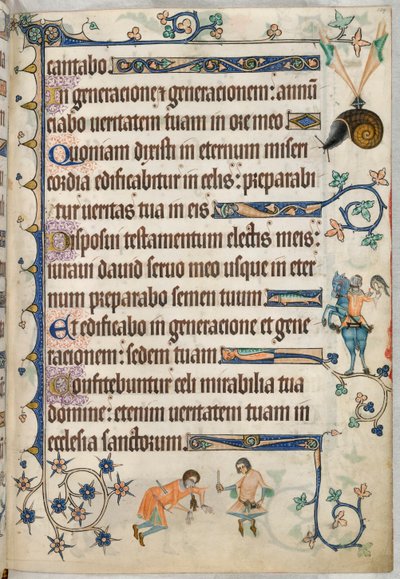 cantabo.
In generacione ⁊ generacionem: annū
ciabo ueritatem tuam in ore meo
Quoniam dixisti in eternum miseri
cordia edificabitur in celis: preparabi
tur ueritas tua in eis
Disposui testamentum electis meis:
iuraui dauid seruo meo usque in eter
num preparabo semen tuum.
Et edificabo in generacione et gene
racionem: sedem tuam
Confitebuntur celi mirabilia tua
domine: etenim ueritatem tuam in
ecclesia sanctorum.